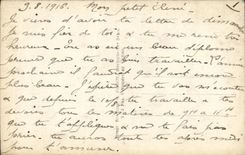 3.8.1916. Mon petit René
Je viens d'avoir ta lettre de dimanche
Je suis fier de toi & tu me rends très
heureux. Tu as eu un beau diplôme
preuve que tu as bien travaillé. L'année
prochaine il faudrait qu'il soit encore
plus beau. J'espère que tu vas
& que depuis le tu travailles à tes
devoirs tous les matins de 9h à 11h
que tu t'appliques & ne te fais pas
tu auras tout les après midi
pour t'amuser.